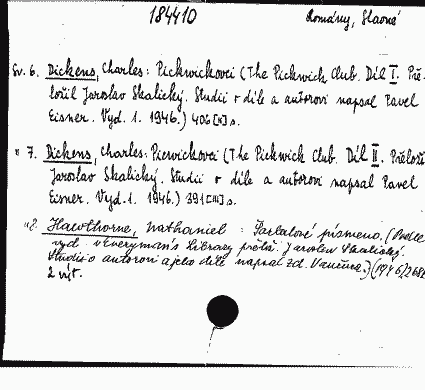 184410 Romány, Slavné
Sv. 6. Dickens, Charles: Pickwickovci (The Pickwick Club. Díl I. Pře-
ložil Jaroslav Skalický. Studii o díle a autorovi napsal Pavel
Eisner. Vyd. 1. 1946.) 406 s.
" 7. Dickens, Charles: Pickwickovci (The Pickwick Club. Díl II. Přeložil
Jaroslav Skalický. Studii o díle a autorovi napsal Pavel
Eisner. Vyd. 1. 1946.) 391 [III] s.
"8. Hawthorne, Nathaniel: Šarlatové písmeno. (Podle
vyd. v Everyman's Library přel. Jaroslav Skalický.
Studii o autorovi a jeho díle napsal Zd. Vančura.) (1946)
2 výt.